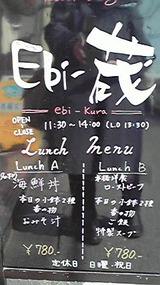 Ebi-蔵
ebi-Kura
OPEN
CLOSE
11:30~14:00 (L.O 13:30)
Lunch Menu
Lunch A
Lunch B
海鮮丼
ローストビーフ
本日の小鉢2種
香の物
おみそ汁
本日の小鉢2種
香の物
ご飯
特製スープ
¥780-
¥780-
定休日 日曜・祝日